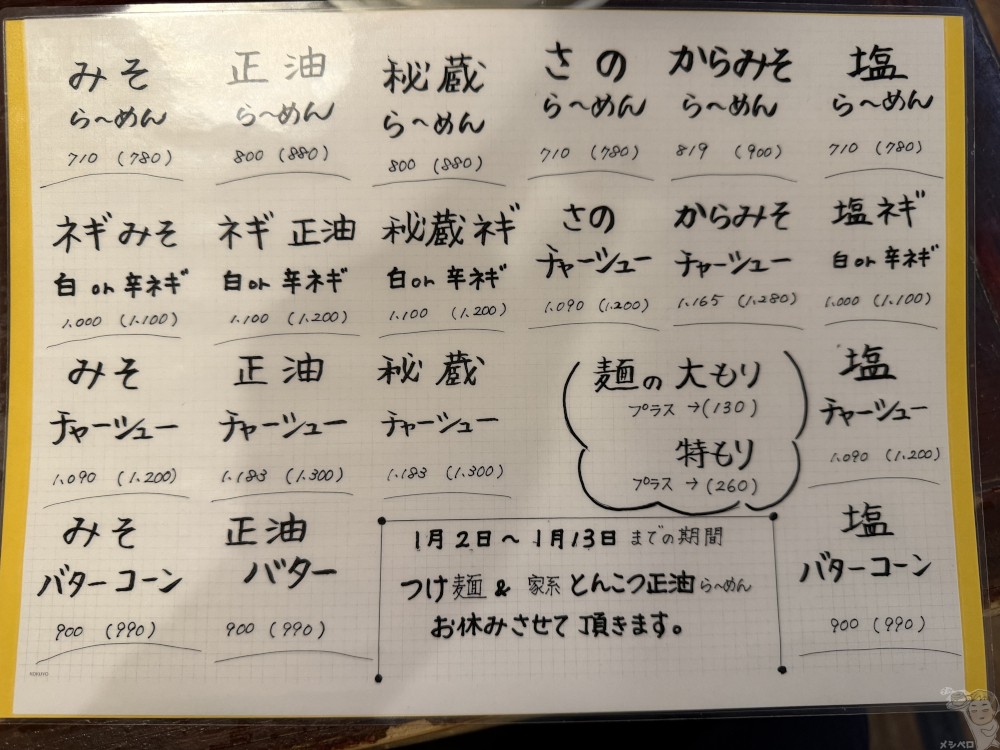 みそ
ら〜めん
710 (780)
正油
ら〜めん
800 (880)
秘蔵
ら〜めん
800 (880)
さの
ら〜めん
710 (780)
からみそ
ら〜めん
819 (900)
塩
ら〜めん
710 (780)
ネギみそ
白or辛ネギ
1.000 (1.100)
ネギ正油
白or辛ネギ
1.100 (1.200)
秘蔵ネギ
白or辛ネギ
1.100 (1.200)
さの
チャーシュー
1.090 (1.200)
からみそ
チャーシュー
1.165 (1.280)
塩ネギ
白or辛ネギ
1.000 (1.100)
みそ
チャーシュー
1.090 (1.200)
正油
チャーシュー
1.183 (1.300)
秘蔵
チャーシュー
1.183 (1.300)
麺の大もり
プラス→(130)
特もり
プラス→(260)
塩
チャーシュー
1.090 (1.200)
みそ
バターコーン
900 (990)
正油
バター
900 (990)
1月2日〜1月13日までの期間
つけ麺&家系とんこつ正油ら〜めん
お休みさせて頂きます。
塩
バターコーン
900 (990)
KOKUYO
メシペロ